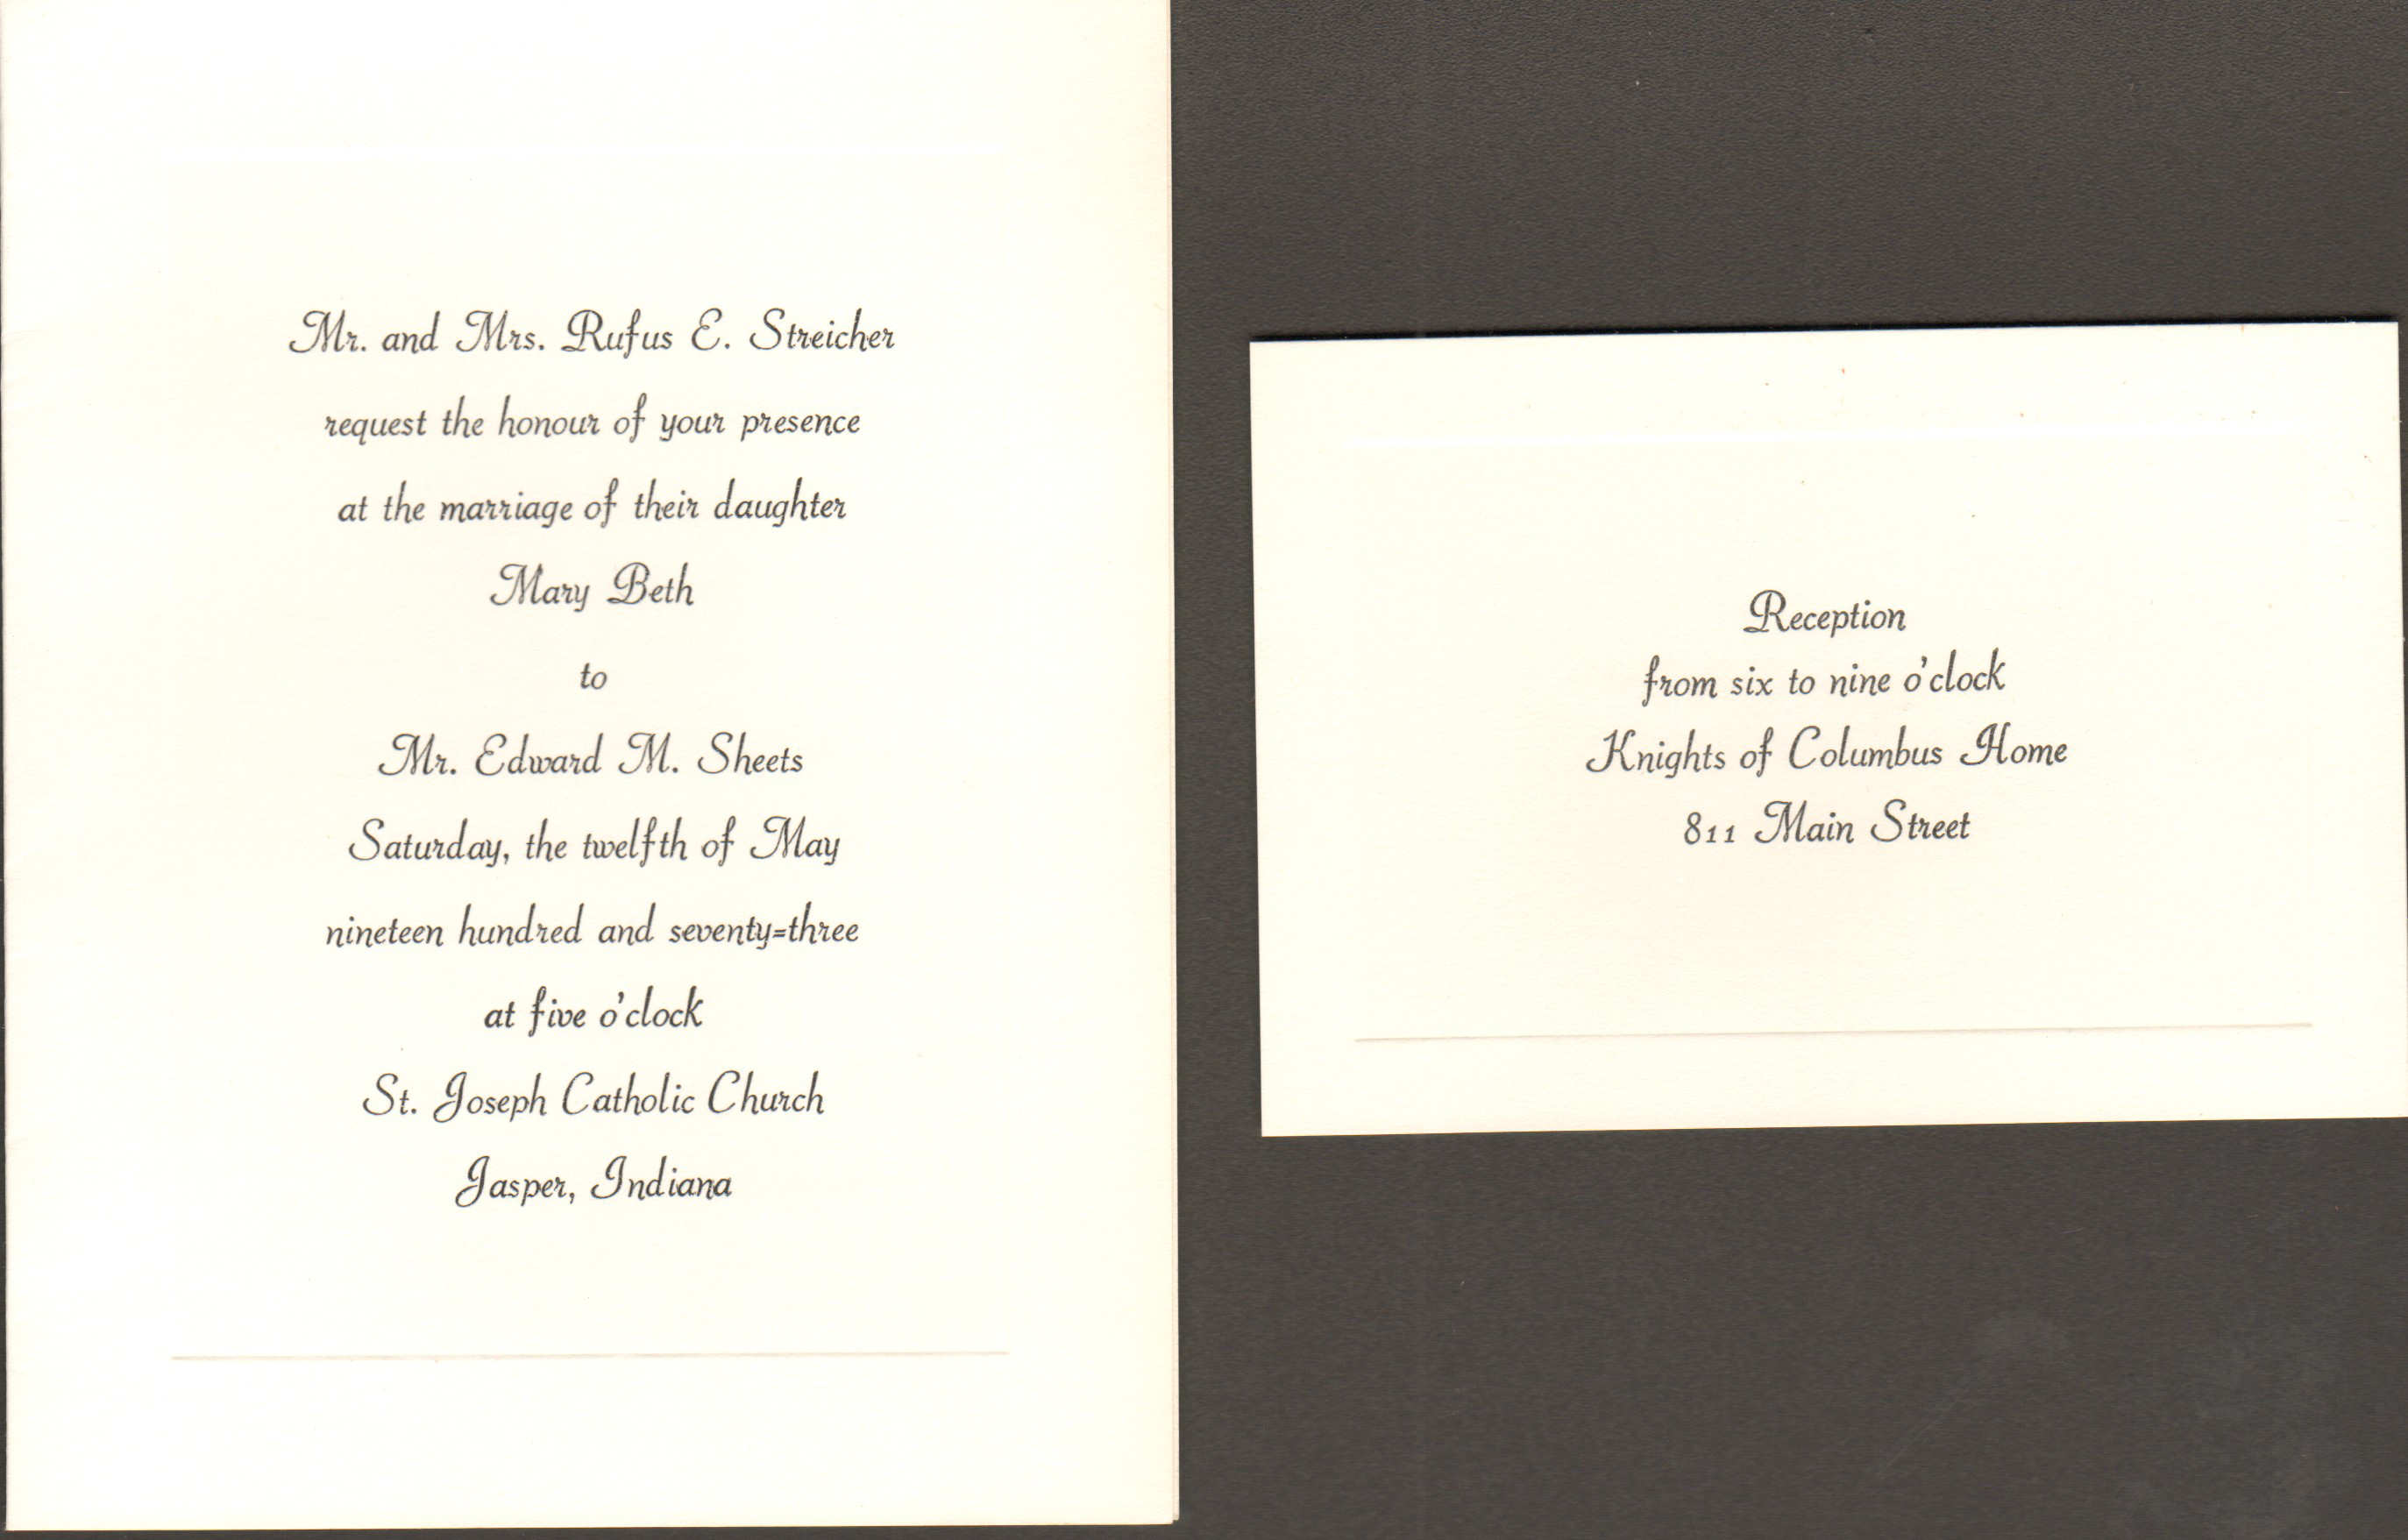 Mr. and Mrs. Rufus E. Streicher
request the honour of your presence
at the marriage of their daughter
Mary Beth
to
Mr. Edward M. Sheets
Saturday, the twelfth of May
nineteen hundred and seventy=three
at five o'clock
St. Joseph Catholic Church
Jasper, Indiana
Reception
from six to nine o'clock
Knights of Columbus Home
811 Main Street